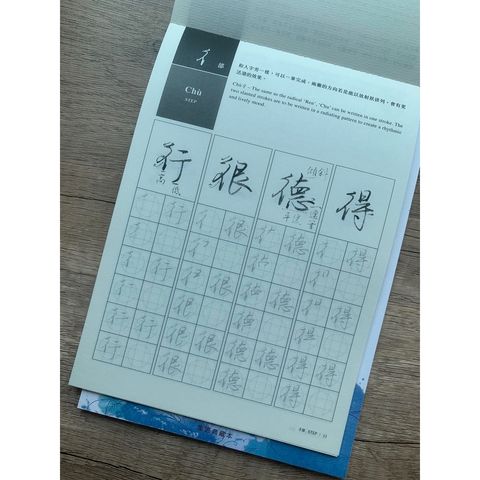 彳 部
Chù
STEP
和人字旁一樣，可以一筆完成。兩撇的方向若是能以放射狀排列，會有更
活潑的效果。
Chù彳 – The same as the radical 'Ren', 'Chu' can be written in one stroke. The
two slanted strokes are to be written in a radiating pattern to create a rhythmic
and lively mood.
行 很 德 得
高 低
行 很 德 得
行 很 德 得
行 很 德 得
行 行 很 很 德 德 得 得
行 很 德 得
STEP / 11
典藏本